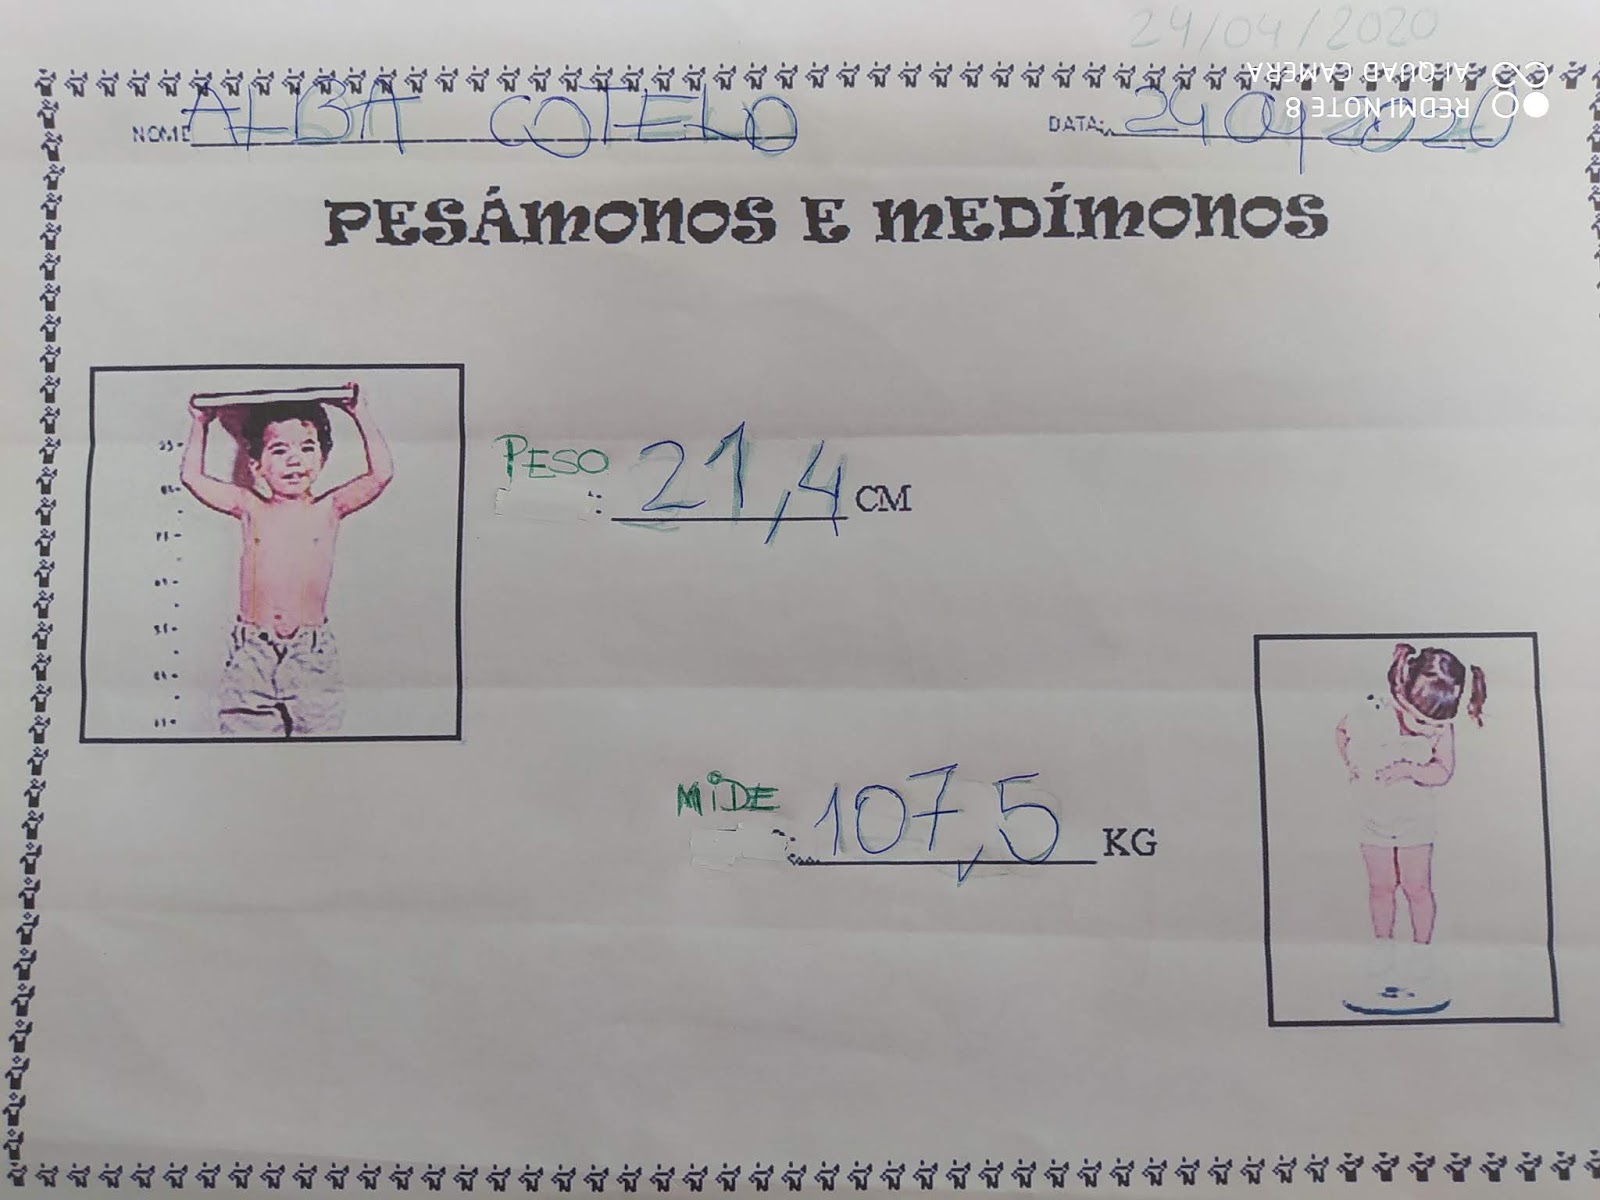 24/04/2020
AI QUAD CAMERA
REDMI NOTE 8
NOME ALBA COTELO DATA: 24 04 2020
PESÁMONOS E MEDÍMONOS
PESO : 21,4 CM
MIDE : 107,5 KG